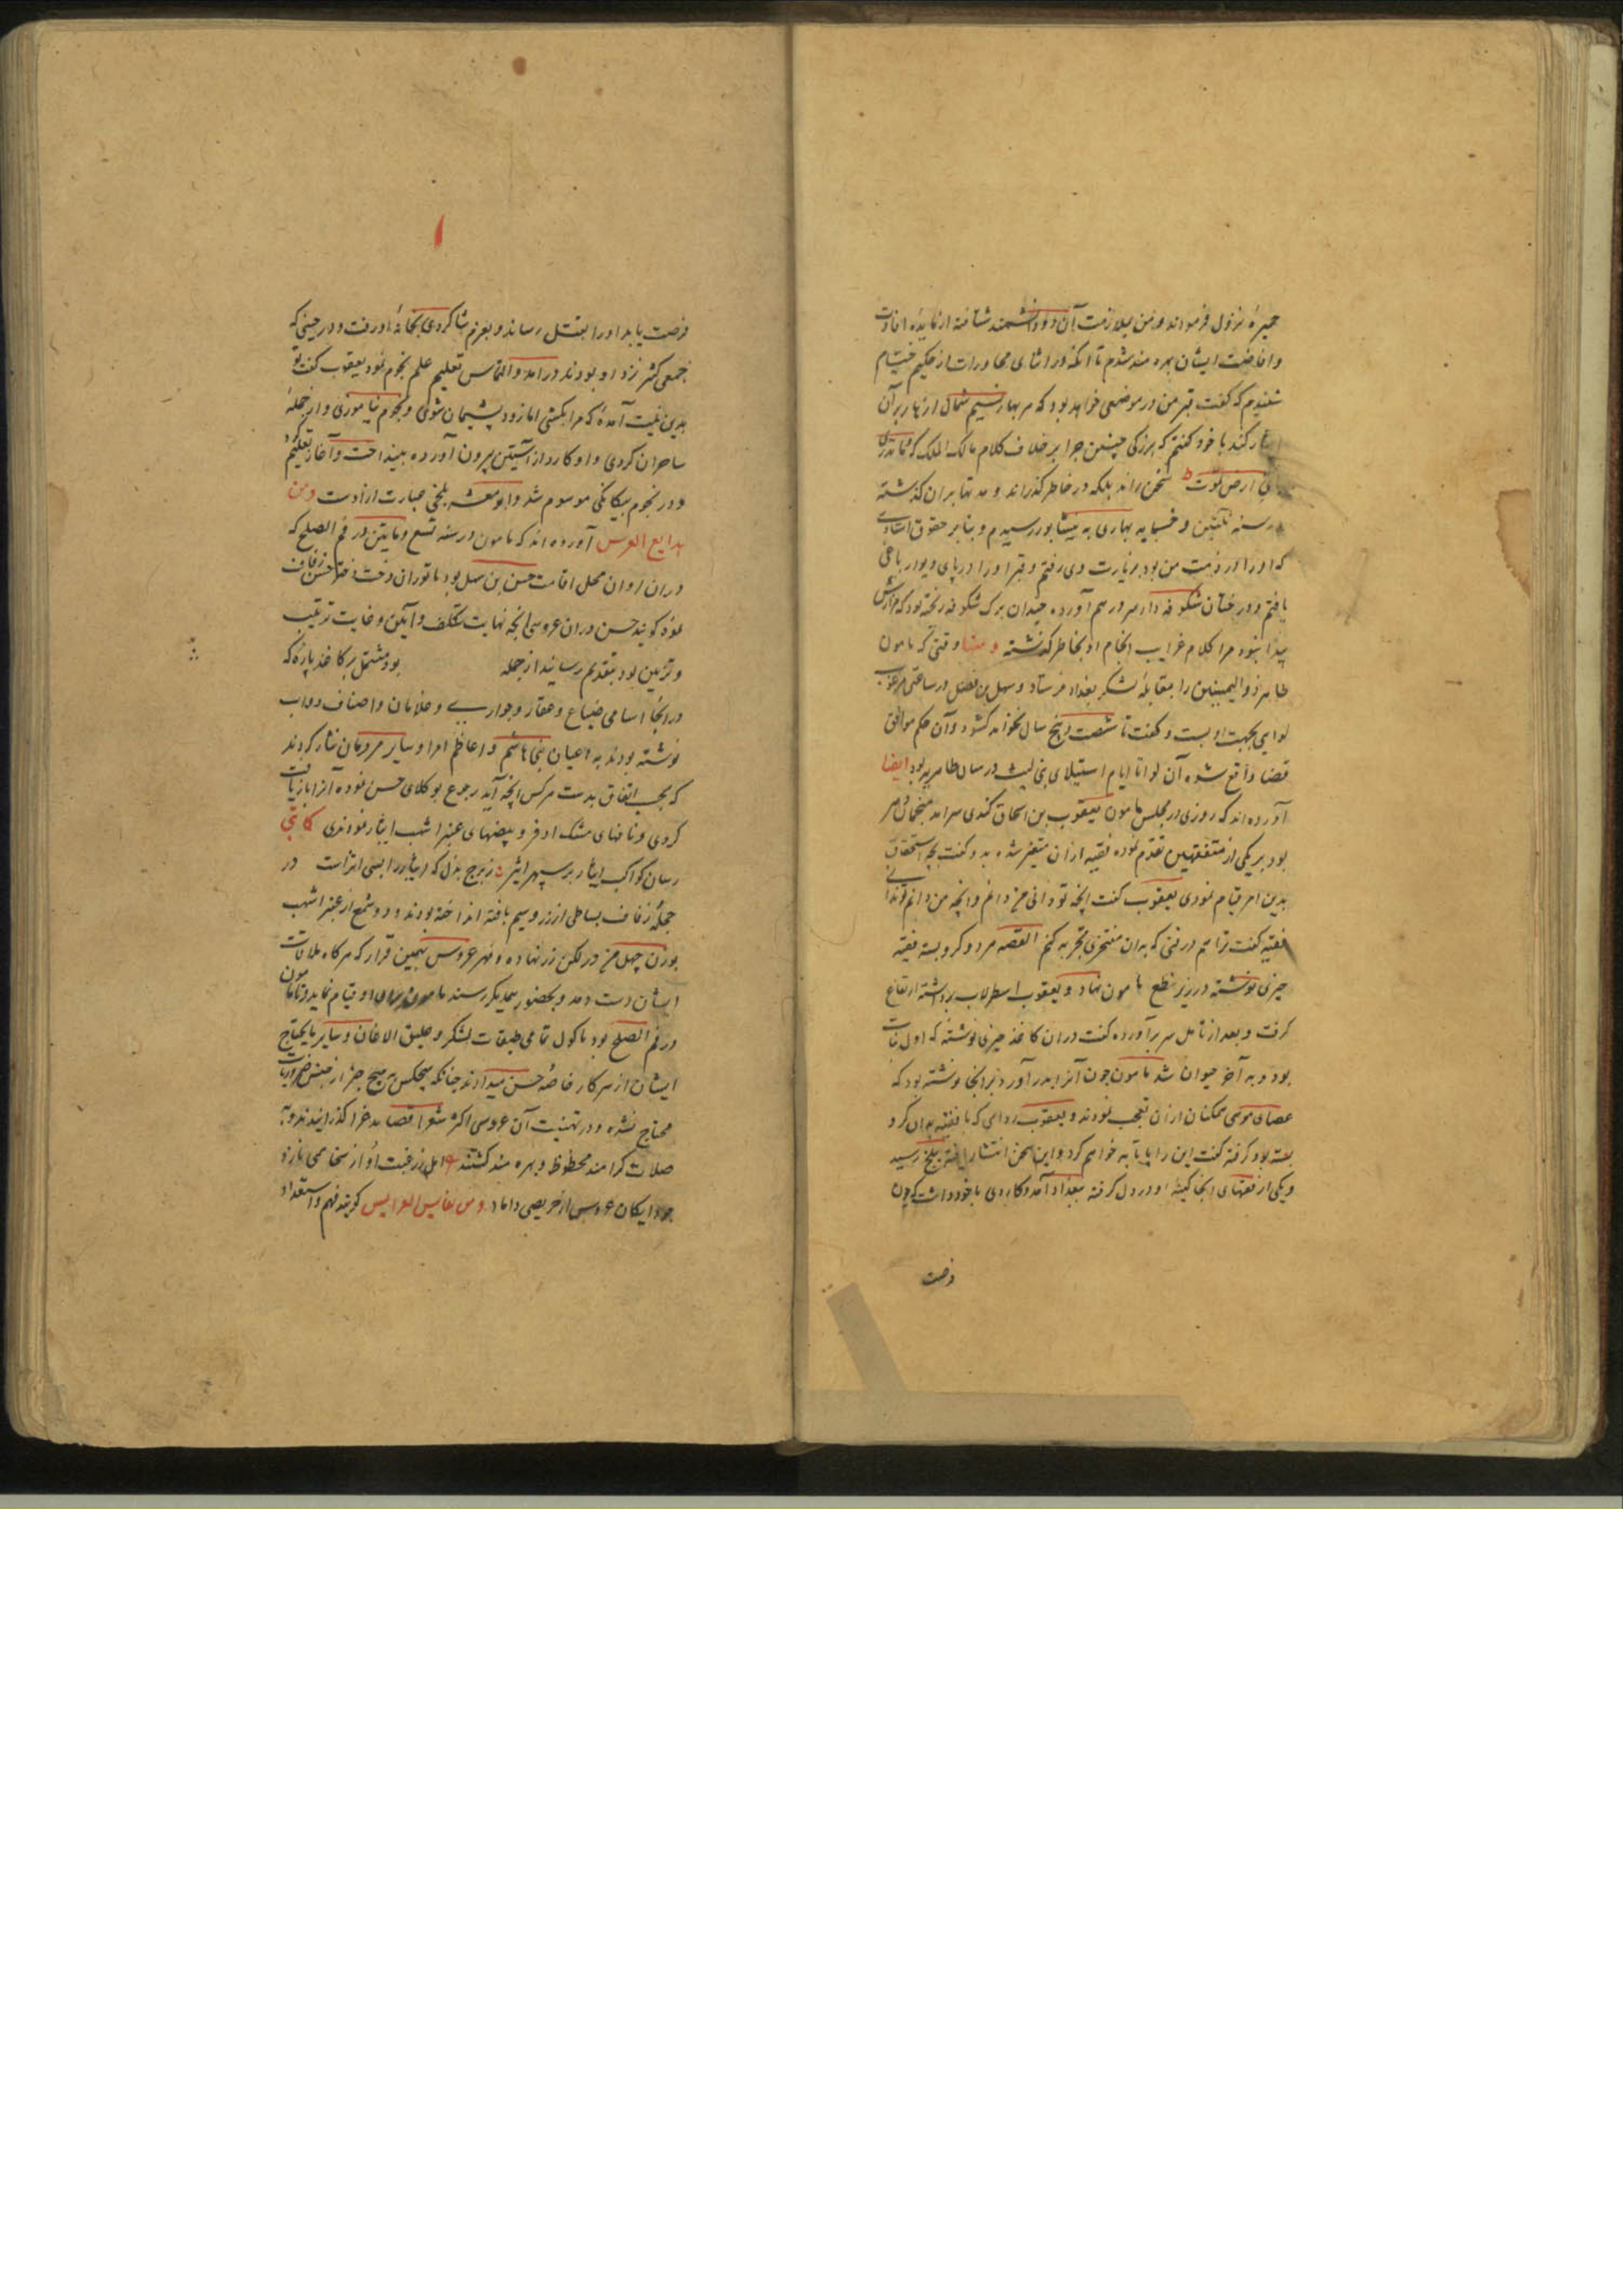 جیره نزول فرمودند و من بملازمت آن دو دانشمند شتافته از مایده افادت
و افاضت ایشان بهره مند شدم تا آنکه در اثنای محاورات از حکیم خیام
شنیدم که گفت قبر من در موضعی خواهد بود که هر بهار نسیم شمال ازهار بر آن
نثار کند با خود گفتم که بزرگی چنین چرا بر خلاف کلام مالک الملک که و ما تدری
بای ارض تموت سخن راند بلکه در خاطر گذراند و مدتها بران گذشته
در سنه ثلثین و خمسمایه بهاری به نیشابور رسیدم و بنابر حقوق استادی
که او را در ذمت من بود بزیارت وی رفتم و قبر او را در پای دیوار باغی
یافتم و درختان شکوفه دار سر در هم آورده چندان برک شکوفه ریخته بود که مزارش
پیدا نبود مرا کلام غرایب انجام او بخاطر گذشته و منها وقتی که مامون
طاهر ذو الیمینین را بمقابله لشکر بغداد فرستاد و سهل بن فضل در ساعتی مرغوب
لوایی بجهت او بست و گفت تا شصت و پنج سال نخواهد گشود و آن حکم موافق
قضا واقع شده آن لوا تا ایام استیلای بنی لیث در میان طاهریه بود ایضا
آورده اند که روزی در مجلس مامون یعقوب بن اسحاق کندی سرآمد منجمان عصر
بود بر یکی از متفقهین تقدم نموده فقیه ازان متغیر شده بدو گفت بچه استحقاق
بدین امر قیام نمودی یعقوب گفت آنچه تو دانی من دانم و آنچه من دانم تو ندانی
فقیه گفت ترا هم در فنی که بدان مفتخری تجربه کنم القصه هر دو گرو بسته فقیه
چیزی نوشته در زیر نطع مامون نهاد و یعقوب اسطرلاب برداشته ارتفاع
گرفت و بعد از تامل سر برآورده گفت دران کاغذ چیزی نوشته که اول نبات
بود و به آخر حیوان شد مامون چون آنرا بدر آورد در آنجا نوشته بود که
عصای موسی همگنان ازان تعجب نمودند و یعقوب ردایی که با فقیه بدان گرو
بسته بود گرفته گفت این را پایتابه خواهم کرد و این سخن انتشار یافته ببلخ رسید
و یکی از فقهای آنجا کینه او در دل گرفته ببغداد آمد و کاردی با خود داشت که چون
فرصت
۱
فرصت یابد او را بقتل رساند و بعزم شاگردی بخانه او رفت و در حینی که
جمعی کثیر نزد او بودند درآمد و التماس تعلیم علم نجوم نمود یعقوب گفت تو
بدین نیت آمده که مرا بکشی اما زود پشیمان شوی و نجوم بیاموزی و از جمله
ماهران گردی و او کارد از آستین بیرون آورده بینداخت و آغاز تعلیم
و در نجوم بیگانگی موسوم شد و ابو معشر بلخی عبارت از اوست و من
بدایع العرس آورده اند که مامون در سنه تسع و مایتین در فم الصلح که
دران اوان محل اقامت حسن بن سهل بود با توران دخت دختر حسن زفاف
نموده گویند حسن دران عروسی آنچه نهایت تکلف و آیین و غایت ترتیب
و تزیین بود بتقدیم رسانید از جمله بود مشتمل بر کاغذ پاره که
در آنجا اسامی ضیاع و عقار و جواری و غلامان و اصناف دواب
نوشته بودند به اعیان بنی هاشم و اعاظم امرا و سایر مردمان نثار کردند
که بحسب اتفاق بدست هر کس آنچه آید رجوع بوکلای حسن نموده آنرا بازیافت
کردی و نافهای مشک اذفر و بیضهای عنبر اشهب ایثار نمودندی کاتبی
رسان کواکب ایثار بر سپهر اثیر ز برج بذل که ایثار را بسی اثر است در
حجله زفاف بساطی از زر و سیم بافته انداخته بودند و دو شمع از عنبر اشهب
بوزن چهل من در لکن زر نهاده و مهر عروس بهمین قرار که هر گاه ملاقات
ایشان دست دهد و بحضور یکدیگر رسند مامون او قیام نماید و تا مامون
در فم الصلح بود ماکول تمامی طبقات لشکر و علیق الاغان و سایر مایحتاج
ایشان از سرکار خاصه حسن میدادند چنانکه هیچکس به هیچ چیز از جنس ضروریات
محتاج نشده و در تهنیت آن عروسی اکثر شعرا قصاید غرا گذرانیدند و به
صلات گرامند محظوظ و بهره مند گشتند
و من نفایس العرایس گویند فهم و استعداد